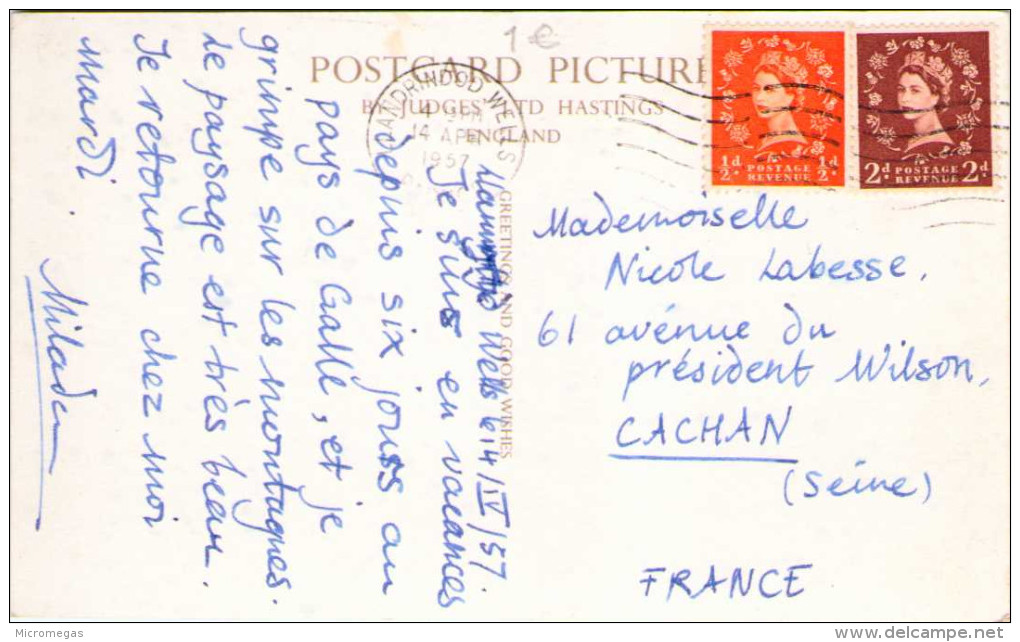 1 €
POSTCARD PICTURE
BY JUDGES' LTD HASTINGS
ENGLAND
GREETINGS AND GOOD WISHES
LLANDRINDOD WELLS
14 APR
1957
½d. ½d.
POSTAGE
REVENUE
2d. 2d.
POSTAGE
REVENUE
Wells le 14/IV/57.
Je suis en vacances
depuis six jours au
pays de Galle, et je
grimpe sur les montagnes.
Le paysage est très beau.
Je retourne chez moi
mardi.
Miladen
Mademoiselle
Nicole Labesse.
61 avénue du
président Wilson,
CACHAN
(Seine)
FRANCE
Micromegas
delcampe.net